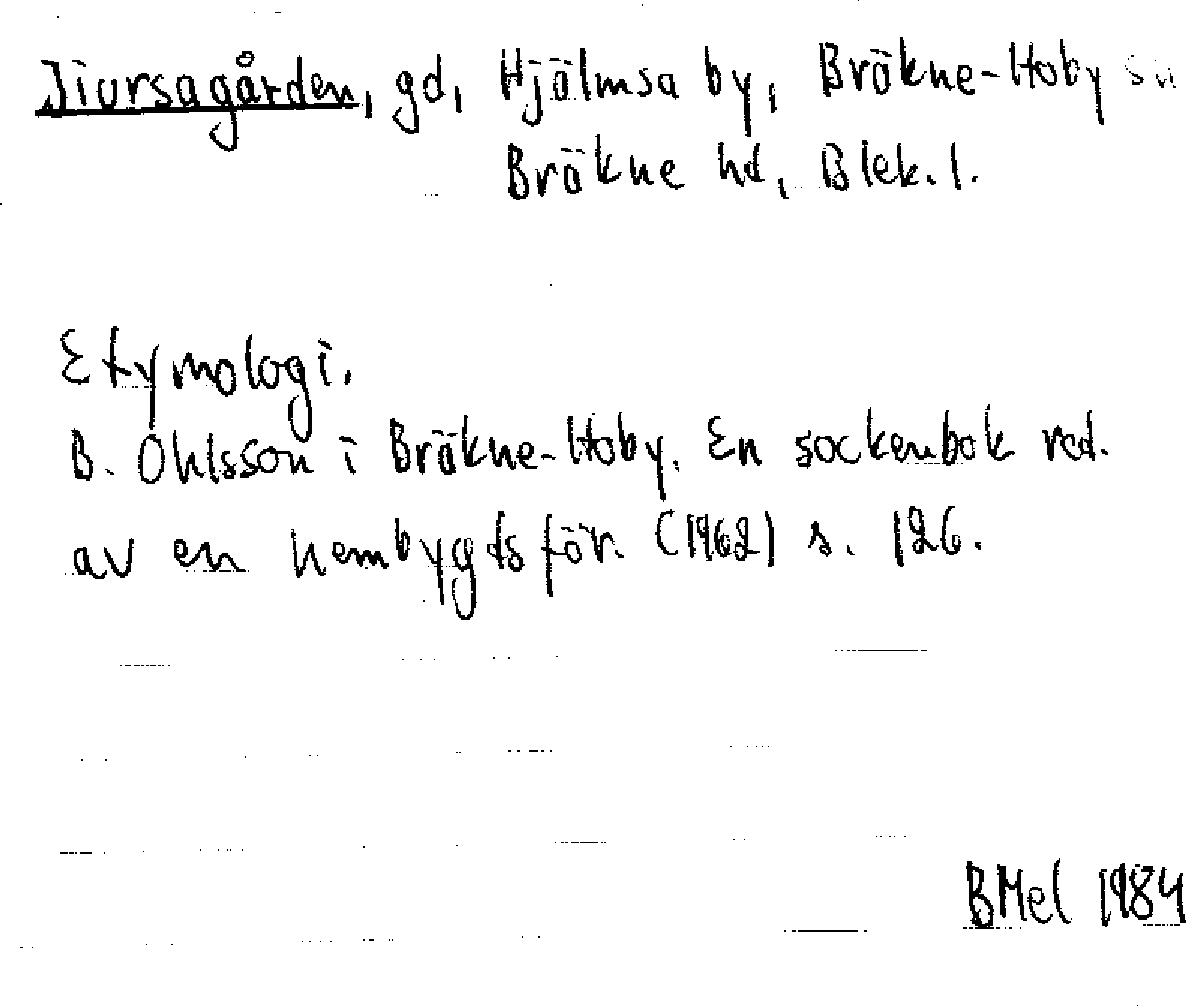 Jiorsagården, gd, Hjälmsa by, Bräkne-Hoby sn
Bräkne hd, Blek. l.
Etymologi.
B. Ohlsson i Bräkne-Hoby. En sockenbok red.
av en hembygdsför. (1962) s. 126.
BMel 1984